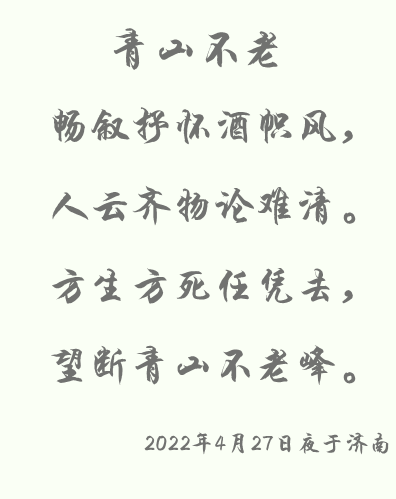 青山不老
畅叙抒怀酒帜风，
人云齐物论难清。
方生方死任凭去，
望断青山不老峰。
2022年4月27日夜于济南